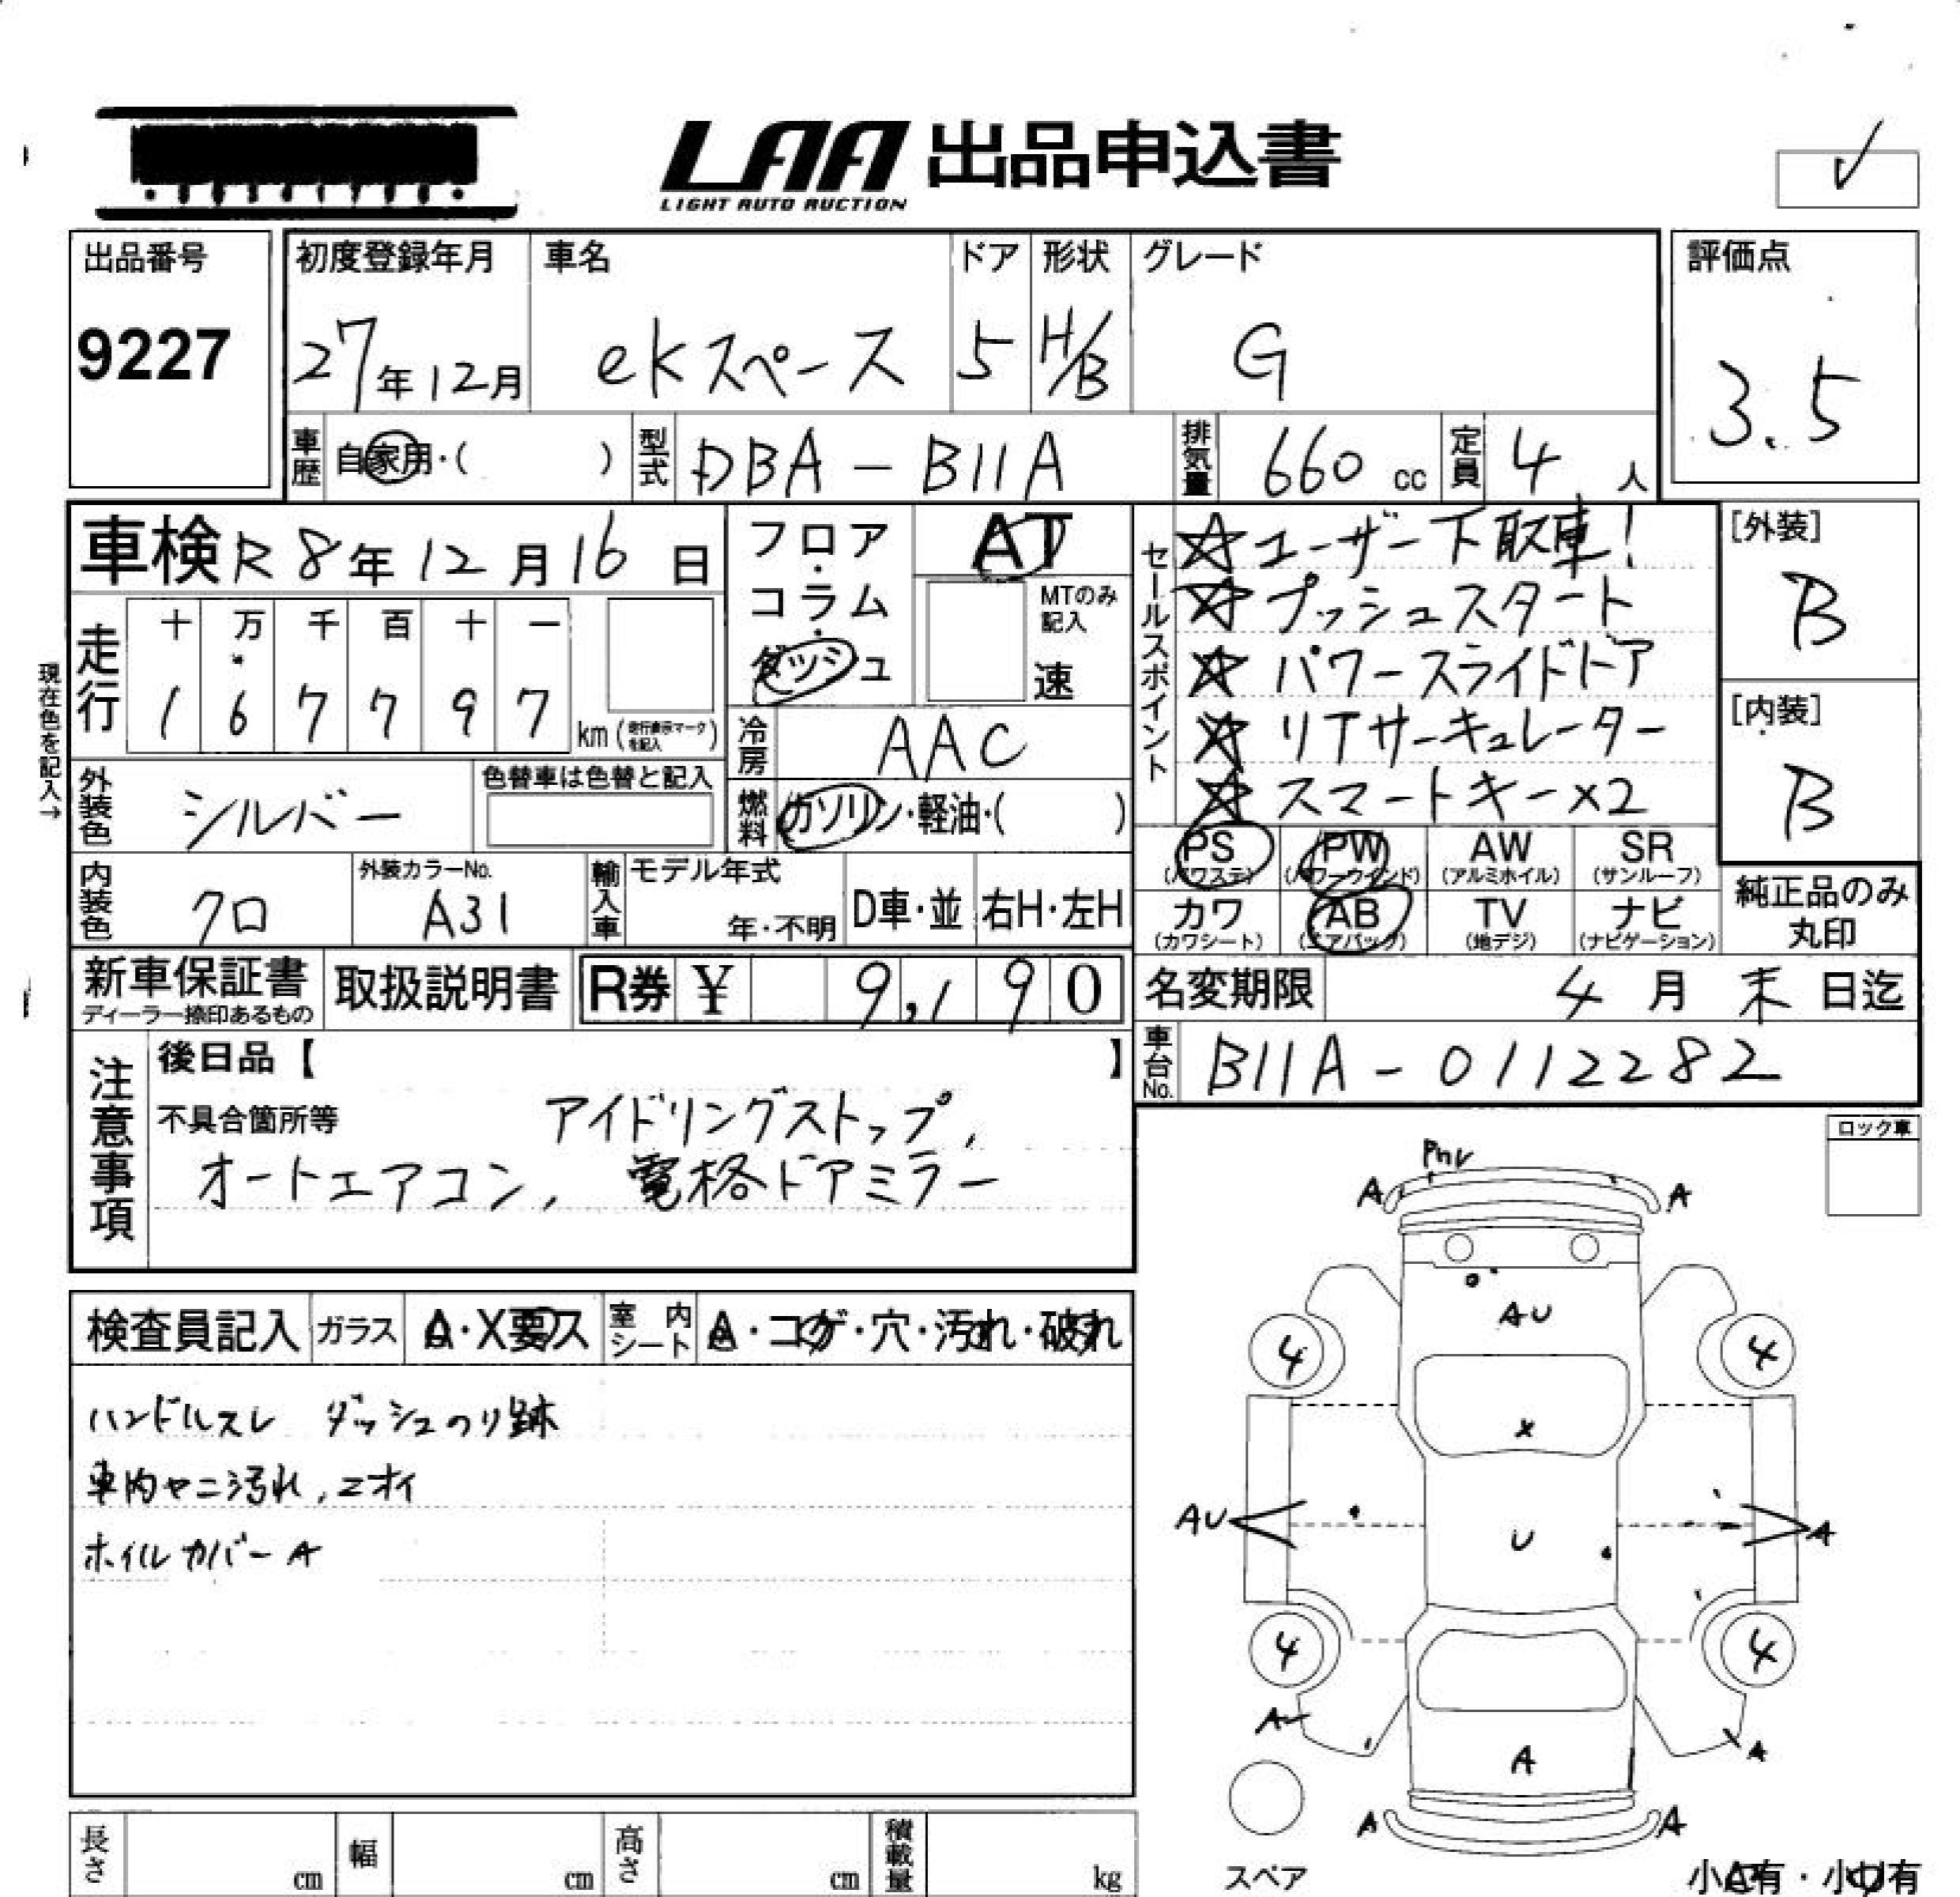 LAA 出品申込書
LIGHT AUTO AUCTION
出品番号
9227
初度登録年月
27年12月
車名
ekスペース
ドア
5
形状
H/B
グレード
G
評価点
3.5
車歴
自家用・( )
型式
DBA-B11A
排気量
660 cc
定員
4 人
車検 R8年12月16日
フロア・コラム・ダッシュ
AT
MTのみ記入
速
セールスポイント
☆ユーザー下取車!
☆プッシュスタート
☆パワースライドドア
☆リアサーキュレーター
☆スマートキー×2
[外装]
B
[内装]
B
現在色を記入→
走行
十 万 千 百 十 一
1 6 7 7 9 7 km (走行表示マークを記入)
冷房
AAC
外装色
シルバー
色替車は色替と記入
燃料
ガソリン・軽油・( )
PS (パワステ)
PW (パワーウインド)
AW (アルミホイル)
SR (サンルーフ)
カワ (カワシート)
AB (エアバック)
TV (地デジ)
ナビ (ナビゲーション)
純正品のみ丸印
内装色
クロ
外装カラーNo.
A31
輸入車
モデル年式
年・不明
D車・並
右H・左H
新車保証書
ディーラー捺印あるもの
取扱説明書
R券 ¥ 9,190
名変期限 4月末日迄
車台No.
B11A-0112282
注意事項
後日品【 】
不具合箇所等 アイドリングストップ,
オートエアコン, 電格ドアミラー
ロック車
検査員記入
ガラス
A・X要ス
室内シート
A・コゲ・穴・汚れ・破れ
ハンドルスレ ダッシュのり跡
車内ヤニ汚れ,ニオイ
ホイルカバーA
A
A
AU
4
4
X
AU
U
A
4
4
A
A
A
A
A
スペア
小A有・小U有
長さ cm
幅 cm
高さ cm
積載量 kg